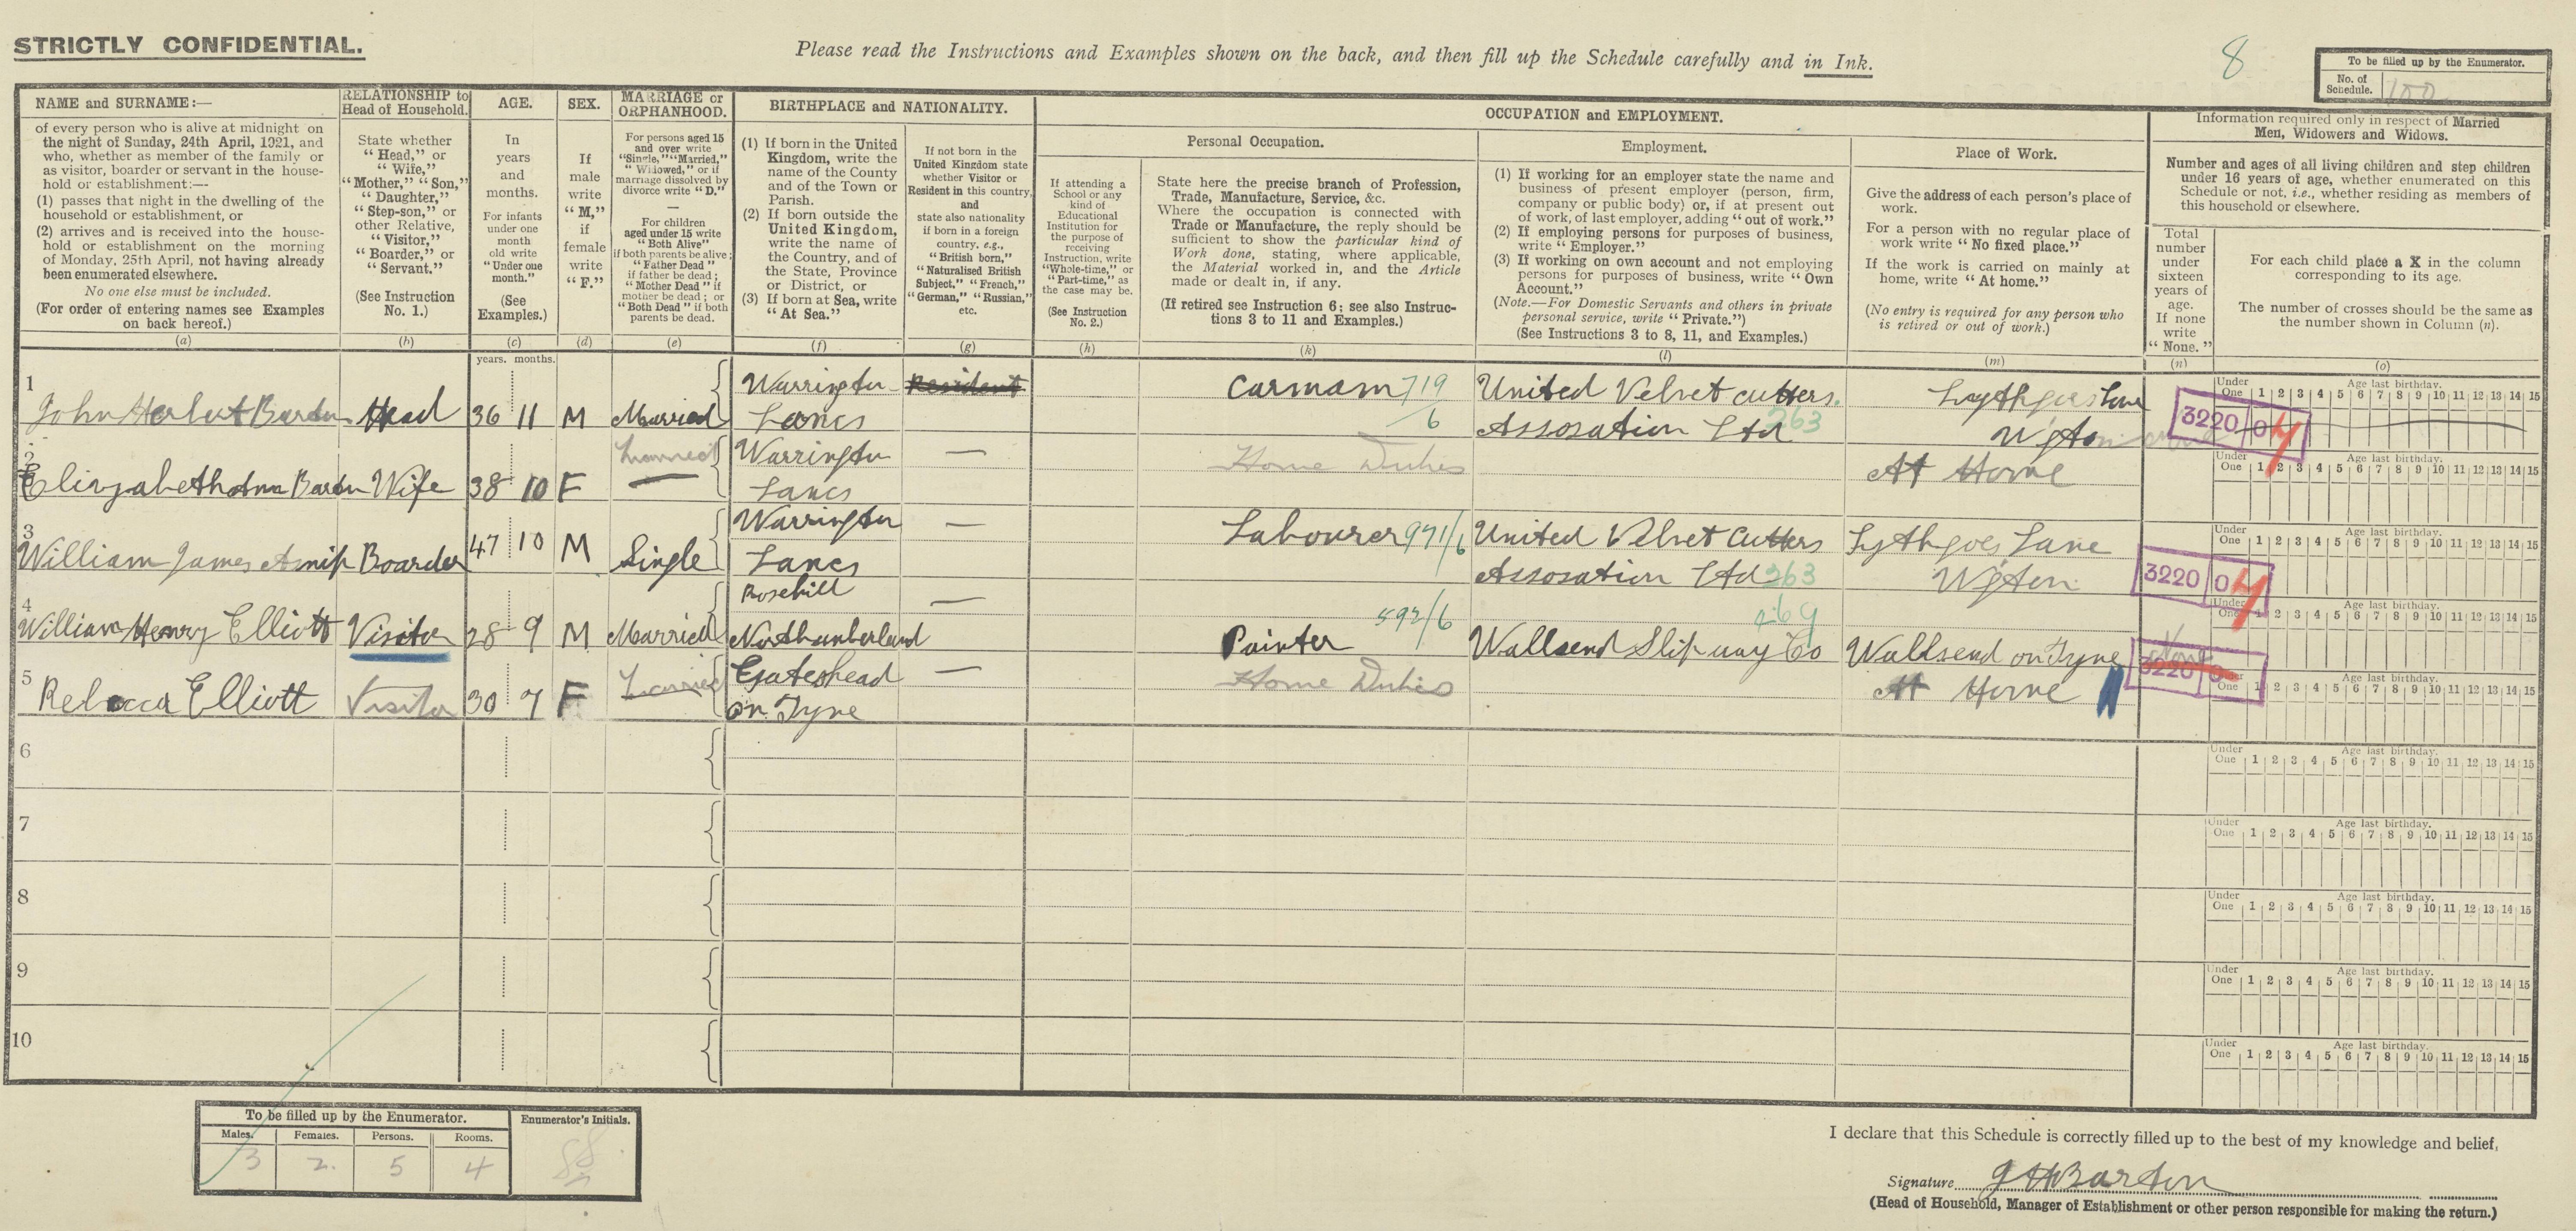 STRICTLY CONFIDENTIAL.
Please read the Instructions and Examples shown on the back, and then fill up the Schedule carefully and in Ink.
8
To be filled up by the Enumerator.
No. of Schedule. 100
NAME and SURNAME:—
of every person who is alive at midnight on
the night of Sunday, 24th April, 1921, and
who, whether as member of the family or
as visitor, boarder or servant in the house-
hold or establishment:—
(1) passes that night in the dwelling of the
household or establishment, or
(2) arrives and is received into the house-
hold or establishment on the morning
of Monday, 25th April, not having already
been enumerated elsewhere.
No one else must be included.
(For order of entering names see Examples
on back hereof.)
(a)
RELATIONSHIP to
Head of Household.
State whether
"Head," or
"Wife,"
"Mother," "Son,"
"Daughter,"
"Step-son," or
other Relative,
"Visitor,"
"Boarder," or
"Servant."
(See Instruction
No. 1.)
(b)
AGE.
In
years
and
months.
For infants
under one
month
old write
"Under one
month."
(See
Examples.)
(c)
years. months.
SEX.
If
male
write
"M,"
if
female
write
"F."
(d)
MARRIAGE or
ORPHANHOOD.
For persons aged 15
and over write
"Single," "Married,"
"Widowed," or if
marriage dissolved by
divorce write "D."
—
For children
aged under 15 write
"Both Alive"
if both parents be alive;
"Father Dead"
if father be dead;
"Mother Dead" if
mother be dead; or
"Both Dead" if both
parents be dead.
(e)
BIRTHPLACE and NATIONALITY.
(1) If born in the United
Kingdom, write the
name of the County
and of the Town or
Parish.
(2) If born outside the
United Kingdom,
write the name of
the Country, and of
the State, Province
or District, or
(3) If born at Sea, write
"At Sea."
(f)
If not born in the
United Kingdom state
whether Visitor or
Resident in this country,
and
state also nationality
if born in a foreign
country, e.g.,
"British born,"
"Naturalised British
Subject," "French,"
"German," "Russian,"
etc.
(g)
OCCUPATION and EMPLOYMENT.
Personal Occupation.
If attending a
School or any
kind of
Educational
Institution for
the purpose of
receiving
Instruction, write
"Whole-time," or
"Part-time," as
the case may be.
(See Instruction
No. 2.)
(h)
State here the precise branch of Profession,
Trade, Manufacture, Service, &c.
Where the occupation is connected with
Trade or Manufacture, the reply should be
sufficient to show the particular kind of
Work done, stating, where applicable,
the Material worked in, and the Article
made or dealt in, if any.
(If retired see Instruction 6; see also Instruc-
tions 3 to 11 and Examples.)
(k)
Employment.
(1) If working for an employer state the name and
business of present employer (person, firm,
company or public body) or, if at present out
of work, of last employer, adding "out of work."
(2) If employing persons for purposes of business,
write "Employer."
(3) If working on own account and not employing
persons for purposes of business, write "Own
Account."
(Note.—For Domestic Servants and others in private
personal service, write "Private.")
(See Instructions 3 to 8, 11, and Examples.)
(l)
Place of Work.
Give the address of each person's place of
work.
For a person with no regular place of
work write "No fixed place."
If the work is carried on mainly at
home, write "At home."
(No entry is required for any person who
is retired or out of work.)
(m)
Information required only in respect of Married
Men, Widowers and Widows.
Number and ages of all living children and step children
under 16 years of age, whether enumerated on this
Schedule or not, i.e., whether residing as members of
this household or elsewhere.
Total
number
under
sixteen
years of
age.
If none
write
"None."
(n)
For each child place a X in the column
corresponding to its age.
The number of crosses should be the same as
the number shown in Column (n).
(o)
1 John Herbert Barton Head 36 11 M Married Warrington Lancs Resident Carmam 719/6 United Velvet cutters. Assosation Ltd 263 Lythgoes Lane Wgton
3220 0 4
Under One Age last birthday. 1 2 3 4 5 6 7 8 9 10 11 12 13 14 15
2 Elizabeth Anna Barton Wife 38 10 F Married — Warrington Lancs — Home Duties At Home
Under One Age last birthday. 1 2 3 4 5 6 7 8 9 10 11 12 13 14 15
3 William James Boarder 47 10 M Single Warrington Lancs — Labourer 971/6 United Velvet Cutters Assosation Ltd 363 Lythgoes Lane Wgton
3220 0 4
Under One Age last birthday. 1 2 3 4 5 6 7 8 9 10 11 12 13 14 15
4 William Henry Elliott Visitor 28 9 M Married Rosehill Northumberland — Painter 592/6 Wallsend Slipway Co 269 Wallsend on Tyne None
3220 0
Under One Age last birthday. 1 2 3 4 5 6 7 8 9 10 11 12 13 14 15
5 Rebecca Elliott Visitor 30 7 F Married Gateshead on Tyne — Home Duties At Home
Under One Age last birthday. 1 2 3 4 5 6 7 8 9 10 11 12 13 14 15
6
Under One Age last birthday. 1 2 3 4 5 6 7 8 9 10 11 12 13 14 15
7
Under One Age last birthday. 1 2 3 4 5 6 7 8 9 10 11 12 13 14 15
8
Under One Age last birthday. 1 2 3 4 5 6 7 8 9 10 11 12 13 14 15
9
Under One Age last birthday. 1 2 3 4 5 6 7 8 9 10 11 12 13 14 15
10
Under One Age last birthday. 1 2 3 4 5 6 7 8 9 10 11 12 13 14 15
To be filled up by the Enumerator.
Males. Females. Persons. Rooms.
3 2. 5 4
Enumerator's Initials.
I declare that this Schedule is correctly filled up to the best of my knowledge and belief,
Signature J H Barton
(Head of Household, Manager of Establishment or other person responsible for making the return.)